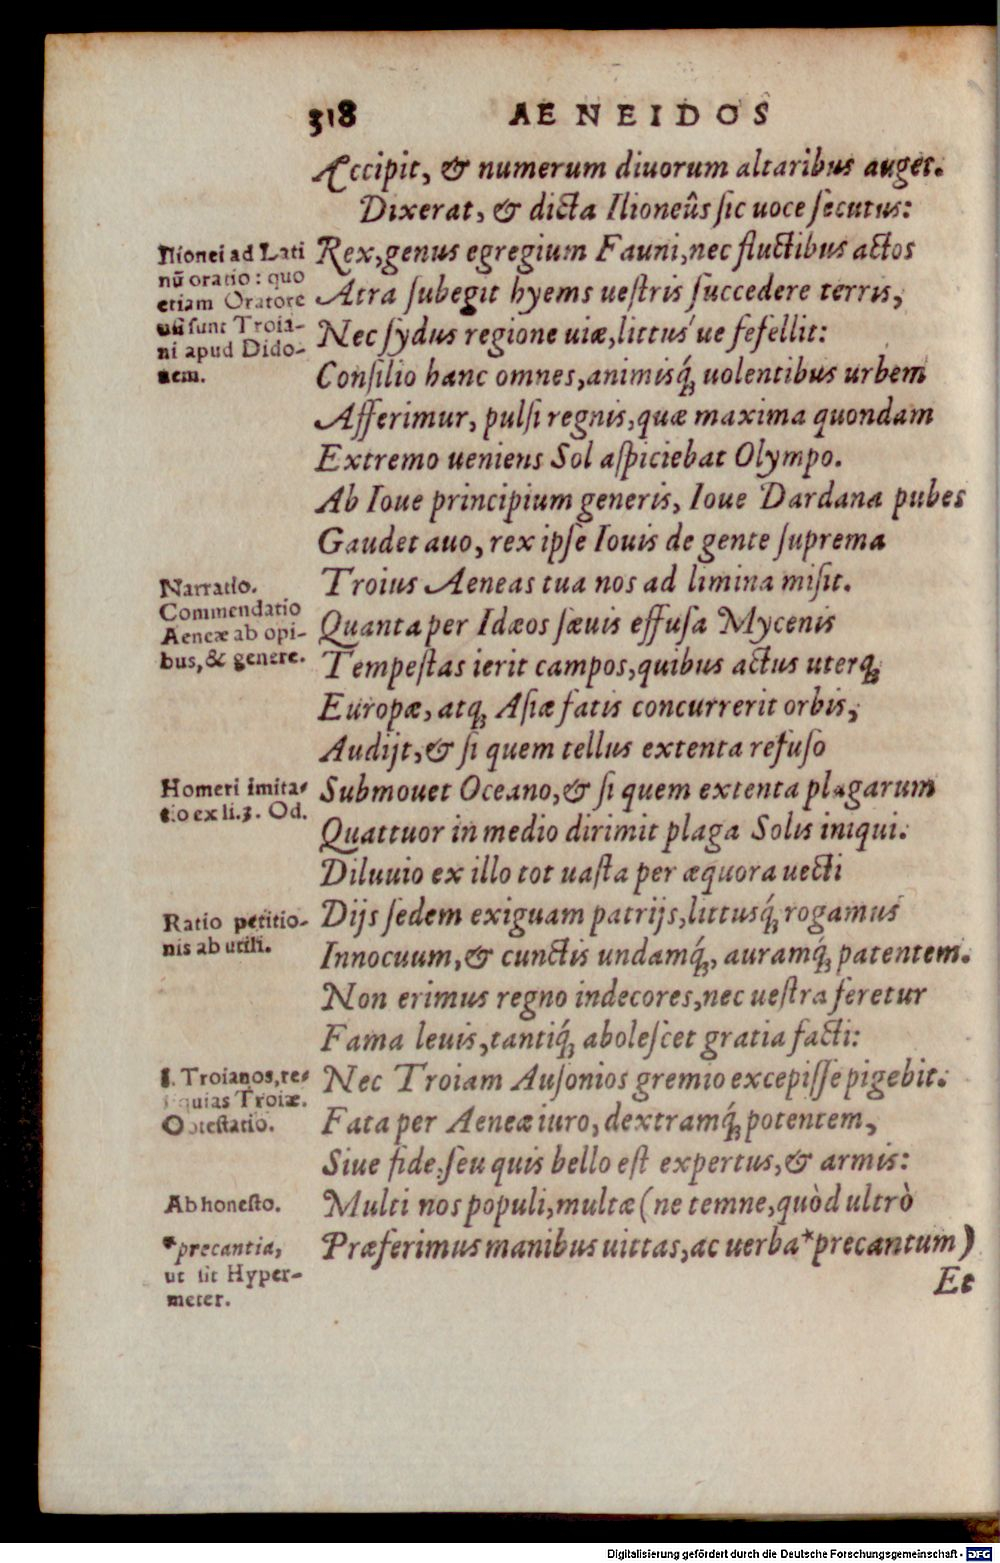 318 AENEIDOS
Accipit, & numerum diuorum altaribus auget.
Dixerat, & dicta Ilioneûs sic uoce secutus:
Ilionei ad Lati
nũ oratio: quo
etiam Oratore
usi sunt Troia-
ni apud Dido-
nem.
Rex, genus egregium Fauni, nec fluctibus actos
Atra subegit hyems uestris succedere terris,
Nec sydus regione uiæ, littus´ue fefellit:
Consilio hanc omnes, animisq́; uolentibus urbem
Afferimur, pulsi regnis, quæ maxima quondam
Extremo ueniens Sol aspiciebat Olympo.
Ab Ioue principium generis, Ioue Dardana pubes
Gaudet auo, rex ipse Iouis de gente suprema
Troius Aeneas tua nos ad limina misit.
Narratio.
Commendatio
Aeneæ ab opi-
bus, & genere.
Quanta per Idæos sæuis effusa Mycenis
Tempestas ierit campos, quibus actus uterq;
Europæ, atq; Asiæ fatis concurrerit orbis,
Audijt, & si quem tellus extenta refuso
Homeri imita-
tio ex li.3. Od.
Submouet Oceano, & si quem extenta plagarum
Quattuor in medio dirimit plaga Solis iniqui.
Diluuio ex illo tot uasta per æquora uecti
Ratio petitio-
nis ab utili.
Dijs sedem exiguam patrijs, littusq́; rogamus
Innocuum, & cunctis undamq́;, auramq́; patentem.
Non erimus regno indecores, nec uestra feretur
Fama leuis, tantiq́; abolescet gratia facti:
i. Troianos, re-
liquias Troiæ.
Obtestatio.
Nec Troiam Ausonios gremio excepisse pigebit.
Fata per Aeneæ iuro, dextramq́; potentem,
Siue fide, seu quis bello est expertus, & armis:
Ab honesto.
Multi nos populi, multæ (ne temne, quòd ultrò
Præferimus manibus uittas, ac uerba *precantum)
*precantia,
ut sit Hyper-
meter.
Et
Digitalisierung gefördert durch die Deutsche Forschungsgemeinschaft - DFG